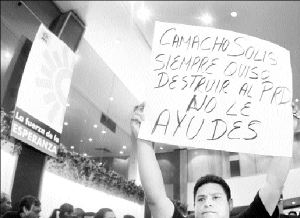 La fuerza de la
ESPERANZA
CAMACHO SOLIS
SIEMPRE QUISO
DESTRUIR AL PRD
NO LE
AYUDES